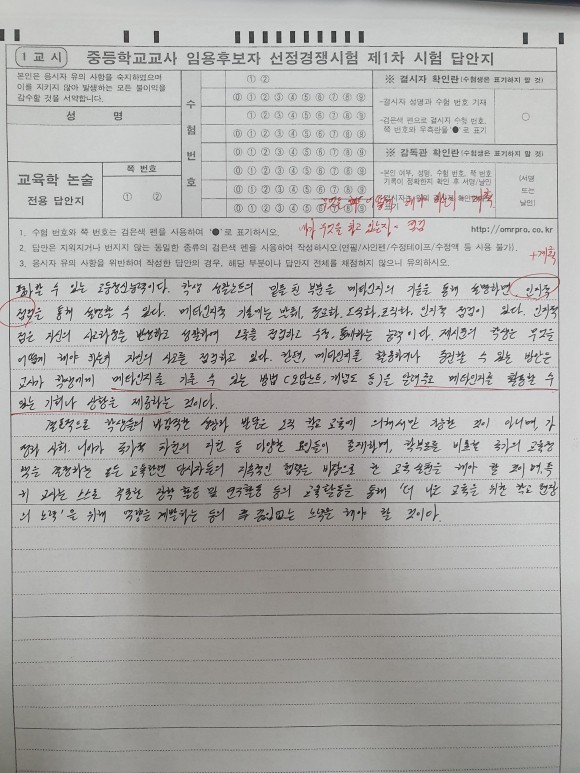 1 교시
중등학교교사 임용후보자 선정경쟁시험 제1차 시험 답안지
본인은 응시자 유의 사항을 숙지하였으며
이를 지키지 않아 발생하는 모든 불이익을
감수할 것을 서약합니다.
성 명
수 험 번 호
① ②
⓪ ① ② ③ ④ ⑤ ⑥ ⑦ ⑧ ⑨
① ②
⓪ ① ② ③ ④ ⑤ ⑥ ⑦ ⑧ ⑨
⓪ ① ② ③ ④ ⑤ ⑥ ⑦ ⑧ ⑨
⓪ ① ② ③ ④ ⑤ ⑥ ⑦ ⑧ ⑨
⓪ ① ② ③ ④ ⑤ ⑥ ⑦ ⑧ ⑨
⓪ ① ② ③ ④ ⑤ ⑥ ⑦ ⑧ ⑨
※ 결시자 확인란 (수험생은 표기하지 말 것)
-결시자 성명과 수험 번호 기재
-검은색 펜으로 결시자 수험 번호,
쪽 번호와 우측란을 '●'로 표기
※ 감독관 확인란 (수험생은 표기하지 말 것)
-본인 여부, 성명, 수험 번호, 쪽 번호
기록이 정확한지 확인 후 서명/날인
(서명
또는
날인)
교육학 논술
전용 답안지
쪽 번호
① ②
1. 수험 번호와 쪽 번호는 검은색 펜을 사용하여 '●'로 표기하시오.
http://omrpro.co.kr
2. 답안은 지워지거나 번지지 않는 동일한 종류의 검은색 펜을 사용하여 작성하시오(연필/사인펜/수정테이프/수정액 등 사용 불가).
3. 응시자 유의 사항을 위반하여 작성한 답안의 경우, 해당 부분이나 답안지 전체를 채점하지 않으니 유의하시오.
+계획
할 수 있는 고등정신능력이다. 학생 성찰노트의 밑줄 친 부분을 메타인지의 기술을 통해 설명하면 인지적
점검을 통해 설명할 수 있다. 메타인지적 기술에는 정교화, 도식화, 조직화, 인지적 점검이 있다. 인지적
검은 자신의 사고과정을 반성하고 성찰하여 오류를 점검하고 수정, 통제하는 능력이다. 제시문의 학생은 무엇을
어떻게 해야 하는지 자신의 사고를 점검하고 있다. 한편, 메타인지를 활용하거나 증진할 수 있는 방안은
교사가 학생에게 메타인지를 기를 수 있는 방법(오답노트, 개념도 등)을 메타인지를 활용할 수
있는 기회나 상황을 제공하는 것이다.
결론적으로 학생들의 바람직한 성장과 발달은 오직 학교 교육에 의해서만 가능한 것이 아니며, 가
정과 사회, 나아가 국가적 차원의 지원 등 다양한 요인들이 존재하며, 학부모를 비롯한 국가의 교육정
책을 결정하는 모든 교육관련 당사자들의 지속적인 협력을 바탕으로 한 교육실천을 해야 할 것이며, 특
히 교사는 스스로 꾸준한 장학 활동 및 연구활동 등의 교육활동을 통해 '더 나은 교육을 위한 학교 현장
의 노력'을 위해 역량을 계발하는 등의 끊임없는 노력을 해야 할 것이다.